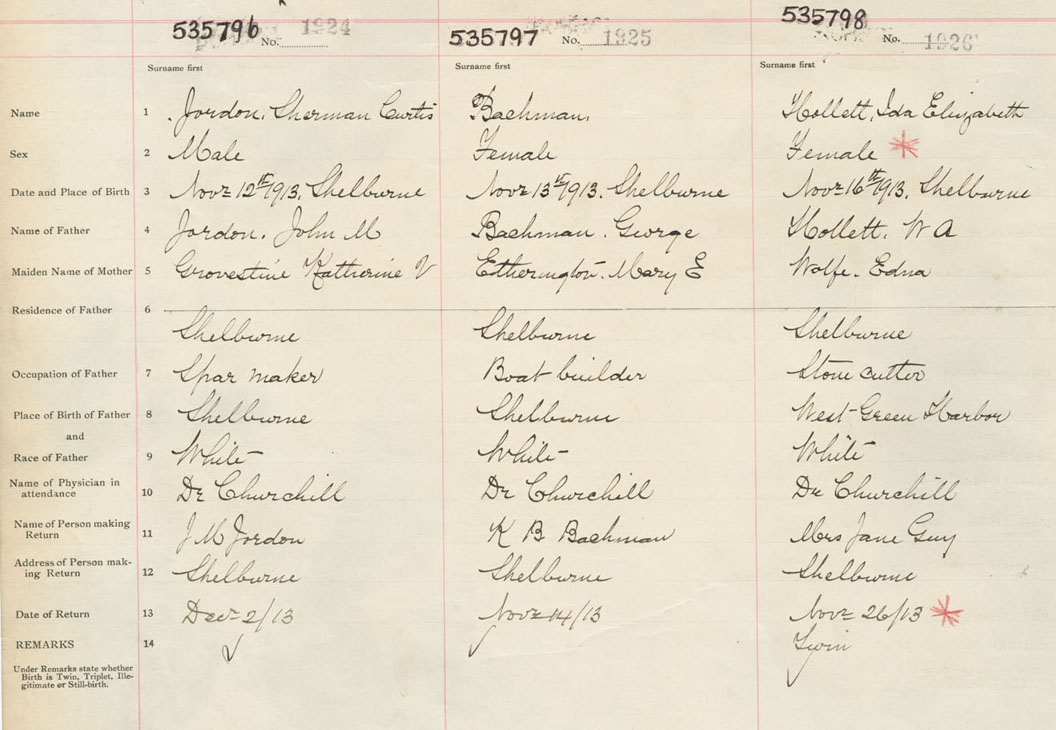 535796 No. 1924 535797 No. 1925 535798 No. 1926
Surname first Surname first Surname first
Name 1 Jordon, Sherman Curtis Bachman, Hollett, Ida Elizabeth
Sex 2 Male Female Female *
Date and Place of Birth 3 Novr 12th 1913, Shelburne Novr 13th 1913. Shelburne Novr 16th 1913, Shelburne
Name of Father 4 Jordon. John M Bachman. George Hollett. W A
Maiden Name of Mother 5 Grovestine Katherine V Etherington. Mary E Wolfe. Edna
Residence of Father 6
Shelburne Shelburne Shelburne
Occupation of Father 7 Spar maker Boat builder Stone cutter
Place of Birth of Father 8 Shelburne Shelburne West Green Harbor
and
Race of Father 9 White White White
Name of Physician in
attendance 10 Dr Churchill Dr Churchill Dr Churchill
Name of Person making
Return 11 J M Jordon K B Bachman Mrs Jane Guy
Address of Person mak-
ing Return 12 Shelburne Shelburne Shelburne
Date of Return 13 Decr 2/13 Novr 14/13 Novr 26/13 *
REMARKS 14 Twin
Under Remarks state whether
Birth is Twin, Triplet, Ille-
gitimate or Still-birth.